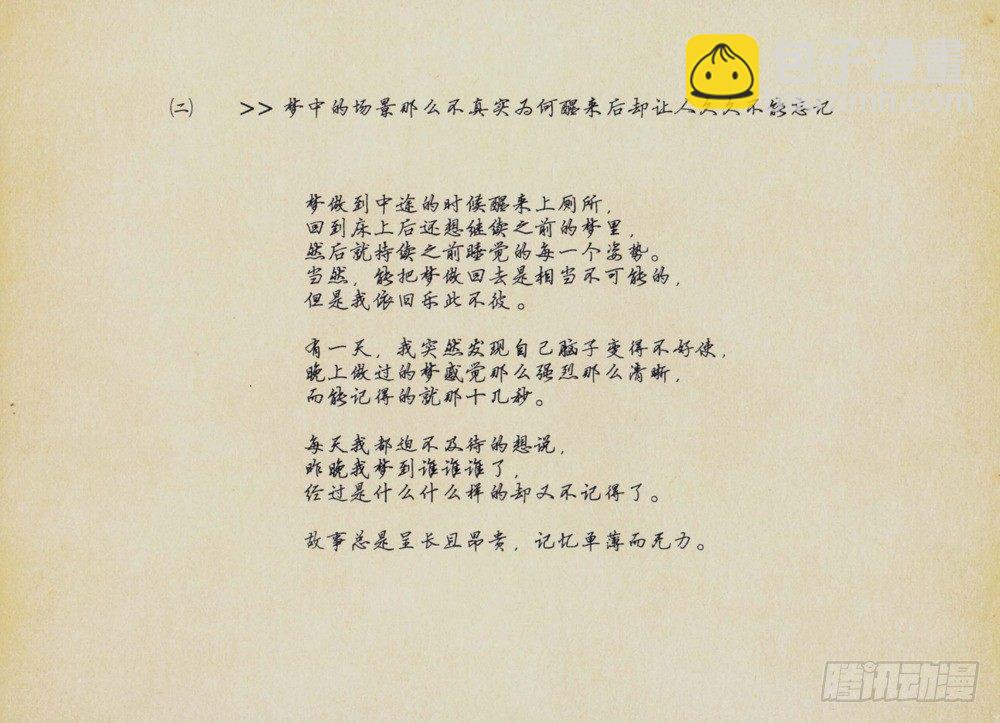 包子漫畫
(二) >>梦中的场景那么不真实为何醒来后却让人久久不能忘记
梦做到中途的时候醒来上厕所,
回到床上后还想继续之前的梦里,
然后就持续之前睡觉的每一个姿势。
当然, 能把梦做回去是相当不可能的,
但是我依旧乐此不彼。
有一天, 我突然发现自己脑子变得不好使,
晚上做过的梦感觉那么强烈那么清晰,
而能记得的就那十几秒。
每天我都迫不及待的想说,
昨晚我梦到谁谁谁了,
经过是什么什么样的却又不记得了。
故事总是呈长且昂贵, 记忆单薄而无力。
腾讯动漫